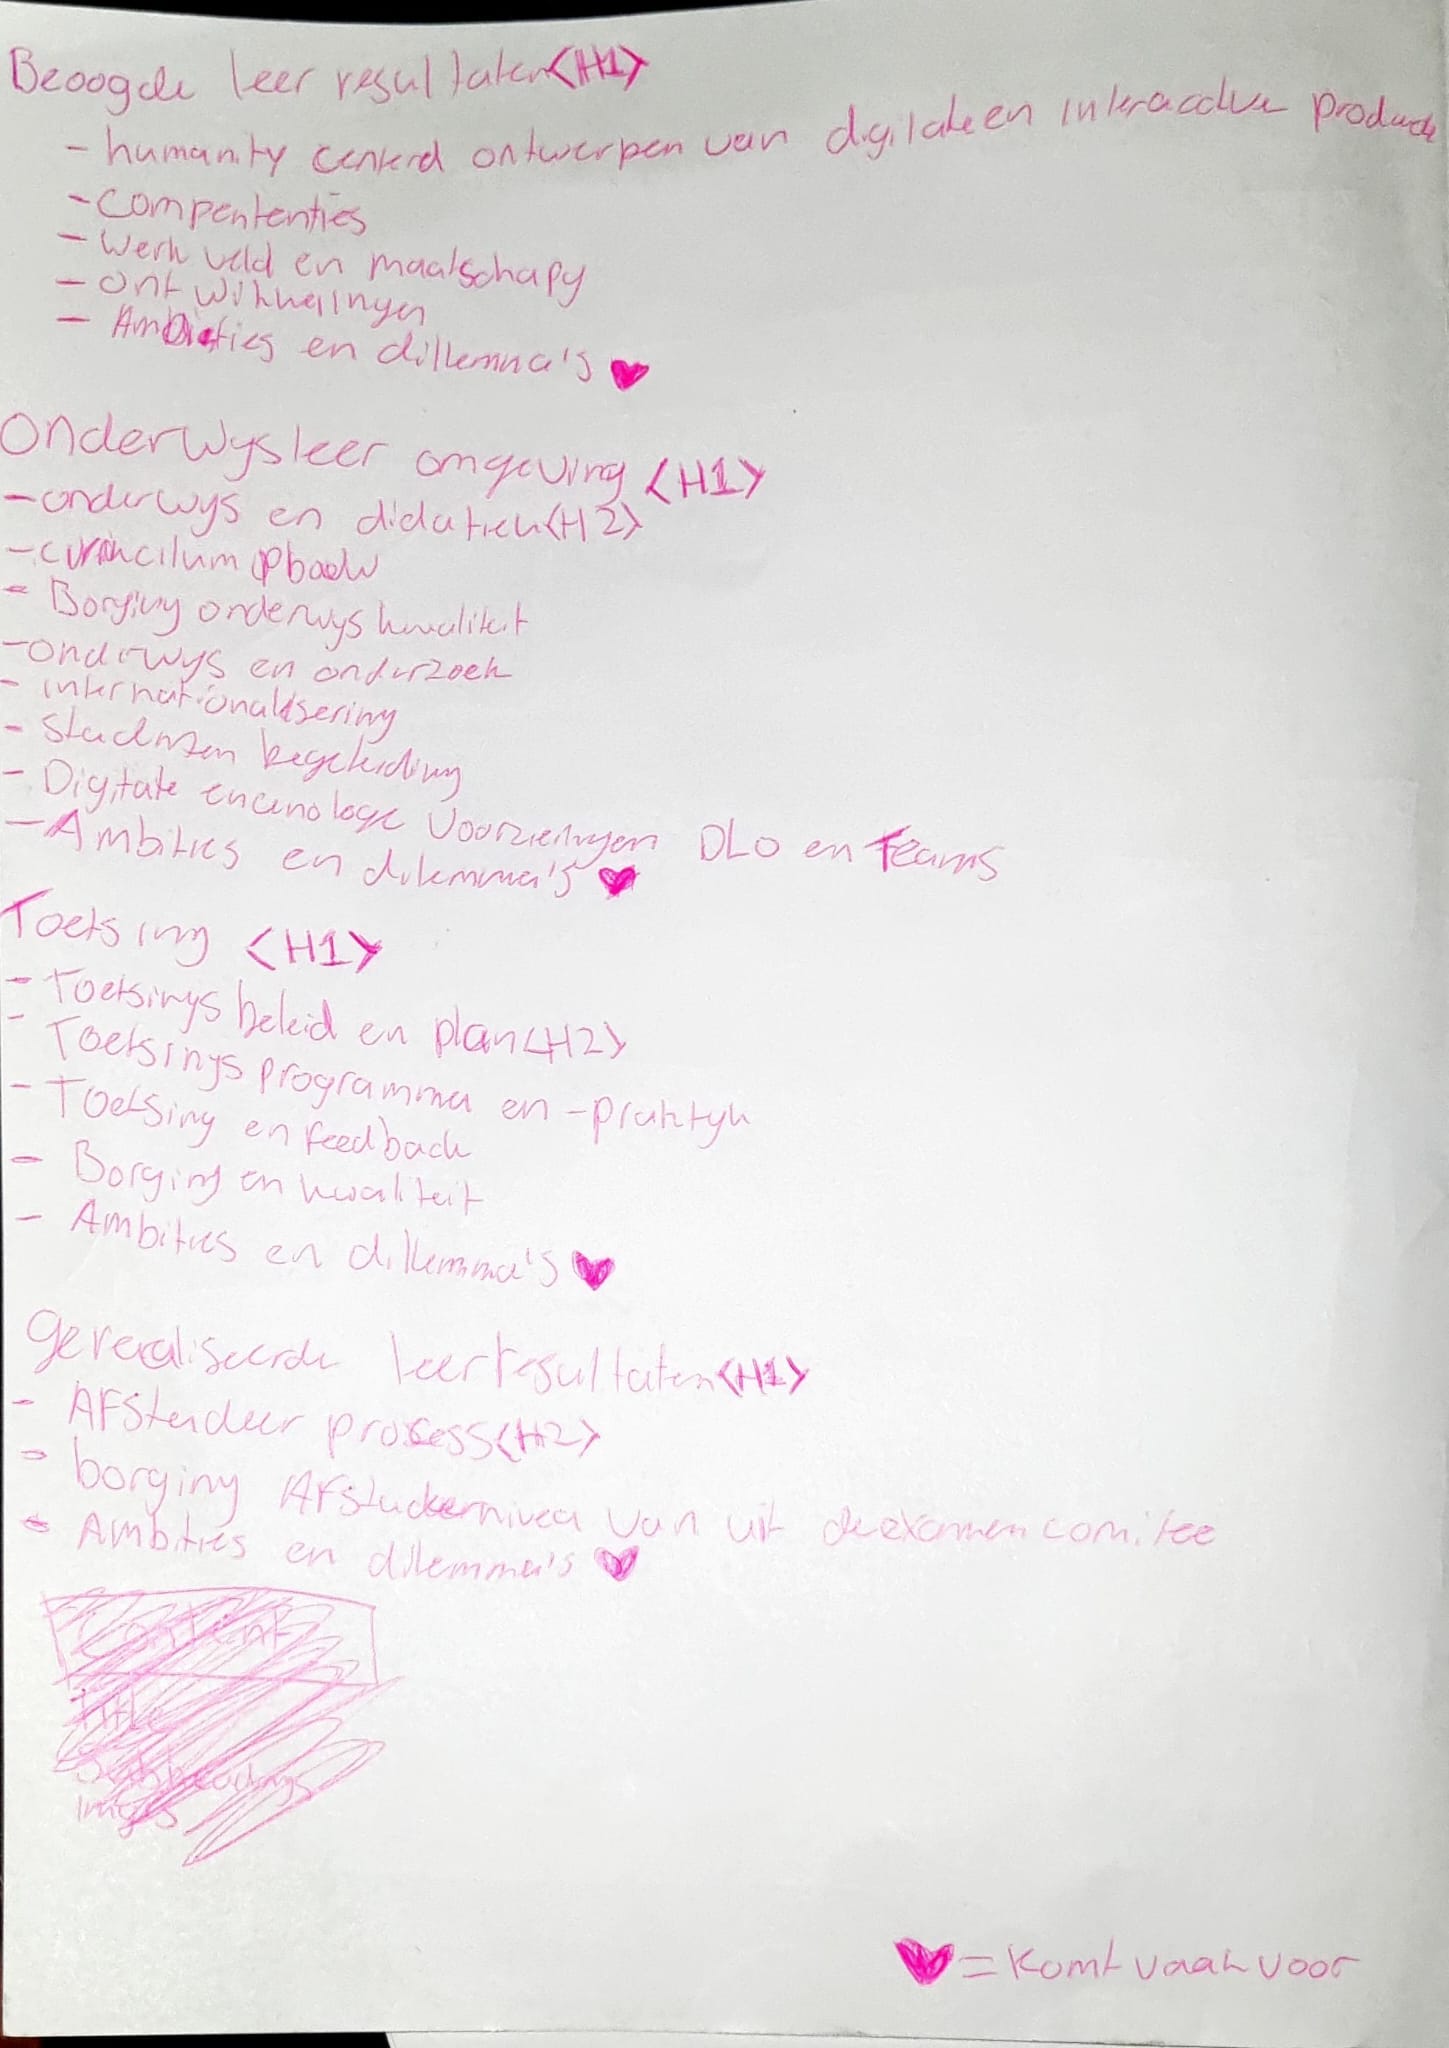 Beoogde leerresultaten <H1>
- humanity centerd ontwerpen van digitale en interacdive producte
- Compententies
- Werk veld en maatschapij
- ontwikkelingen
- Ambities en dillemma's ♥
Onderwijsleer omgeving <H1>
- onderwijs en didatiek <H2>
- curincilum opbouw
- Borging onderwijs kwaliteit
- onderwijs en onderzoek
- internationalisering
- Studenten begeleiding
- Digitale voorzieningen DLO en Teams
- Ambities en dilemma's ♥
Toetsing <H1>
- Toetsings beleid en plan <H2>
- Toetsings programma en -praktijk
- Toetsing en feedback
- Borging en kwaliteit
- Ambities en dillemma's ♥
gerealiseerde leerresultaten <H1>
- Afstudeer process <H2>
- borging Afstudeerniveau van uit de examencomitee
- Ambities en dilemma's ♥
Content
Title
Subheadings
Images
♥ = Komt vaak voor